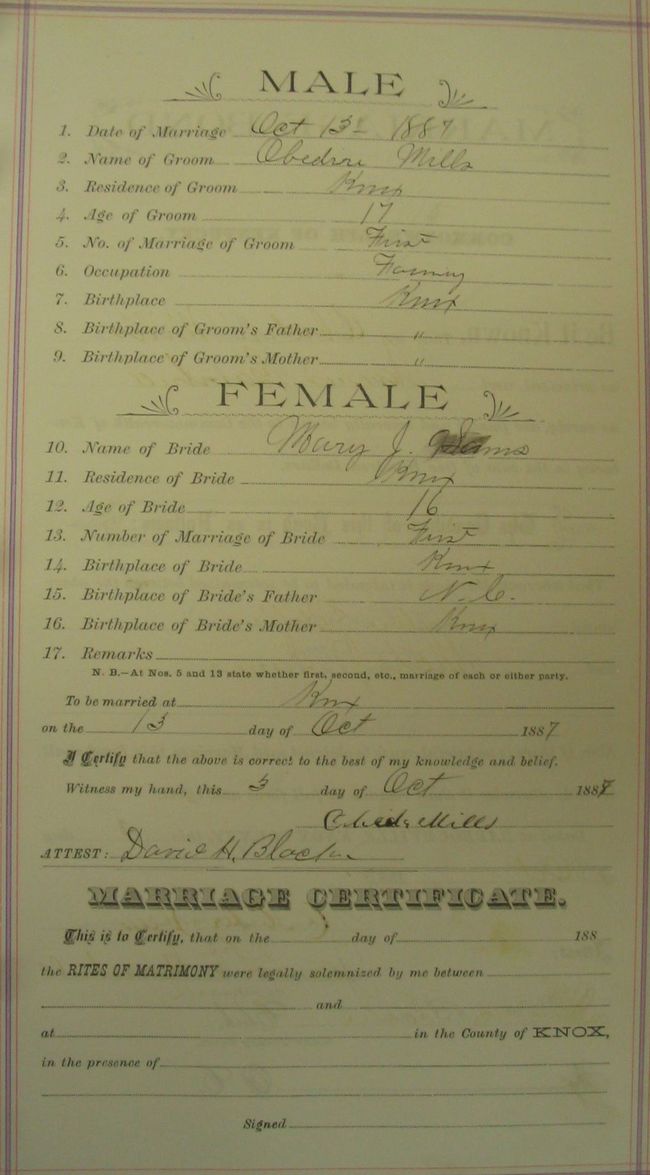 MALE
1. Date of Marriage Oct 13 1887
2. Name of Groom Mills
3. Residence of Groom Knox
4. Age of Groom 17
5. No. of Marriage of Groom First
6. Occupation
7. Birthplace Knox
8. Birthplace of Groom's Father "
9. Birthplace of Groom's Mother "
FEMALE
10. Name of Bride Mary J.
11. Residence of Bride Knox
12. Age of Bride 16
13. Number of Marriage of Bride First
14. Birthplace of Bride Knox
15. Birthplace of Bride's Father N. C.
16. Birthplace of Bride's Mother Knox
17. Remarks
N. B.—At Nos. 5 and 13 state whether first, second, etc., marriage of each or either party.
To be married at Knox
on the 13 day of Oct 1887
I Certify that the above is correct to the best of my knowledge and belief.
Witness my hand, this 3 day of Oct 1887
Mills
ATTEST: David H.
MARRIAGE CERTIFICATE.
This is to Certify, that on the day of 188
the RITES OF MATRIMONY were legally solemnized by me between
and
at in the County of KNOX,
in the presence of
Signed